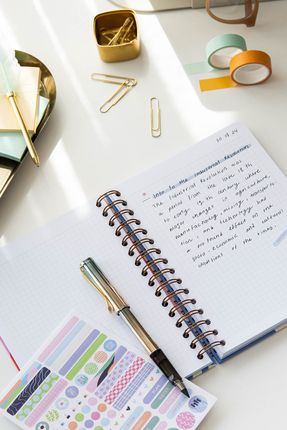 Intro to the Industrial Revolution
The Industrial Revolution was
a period from the late 18th
to early 19th century where
major changes in agriculture,
manufacturing, mining, transport
and technology had
a profound effect on the
socio economic and cultural
conditions of the times.